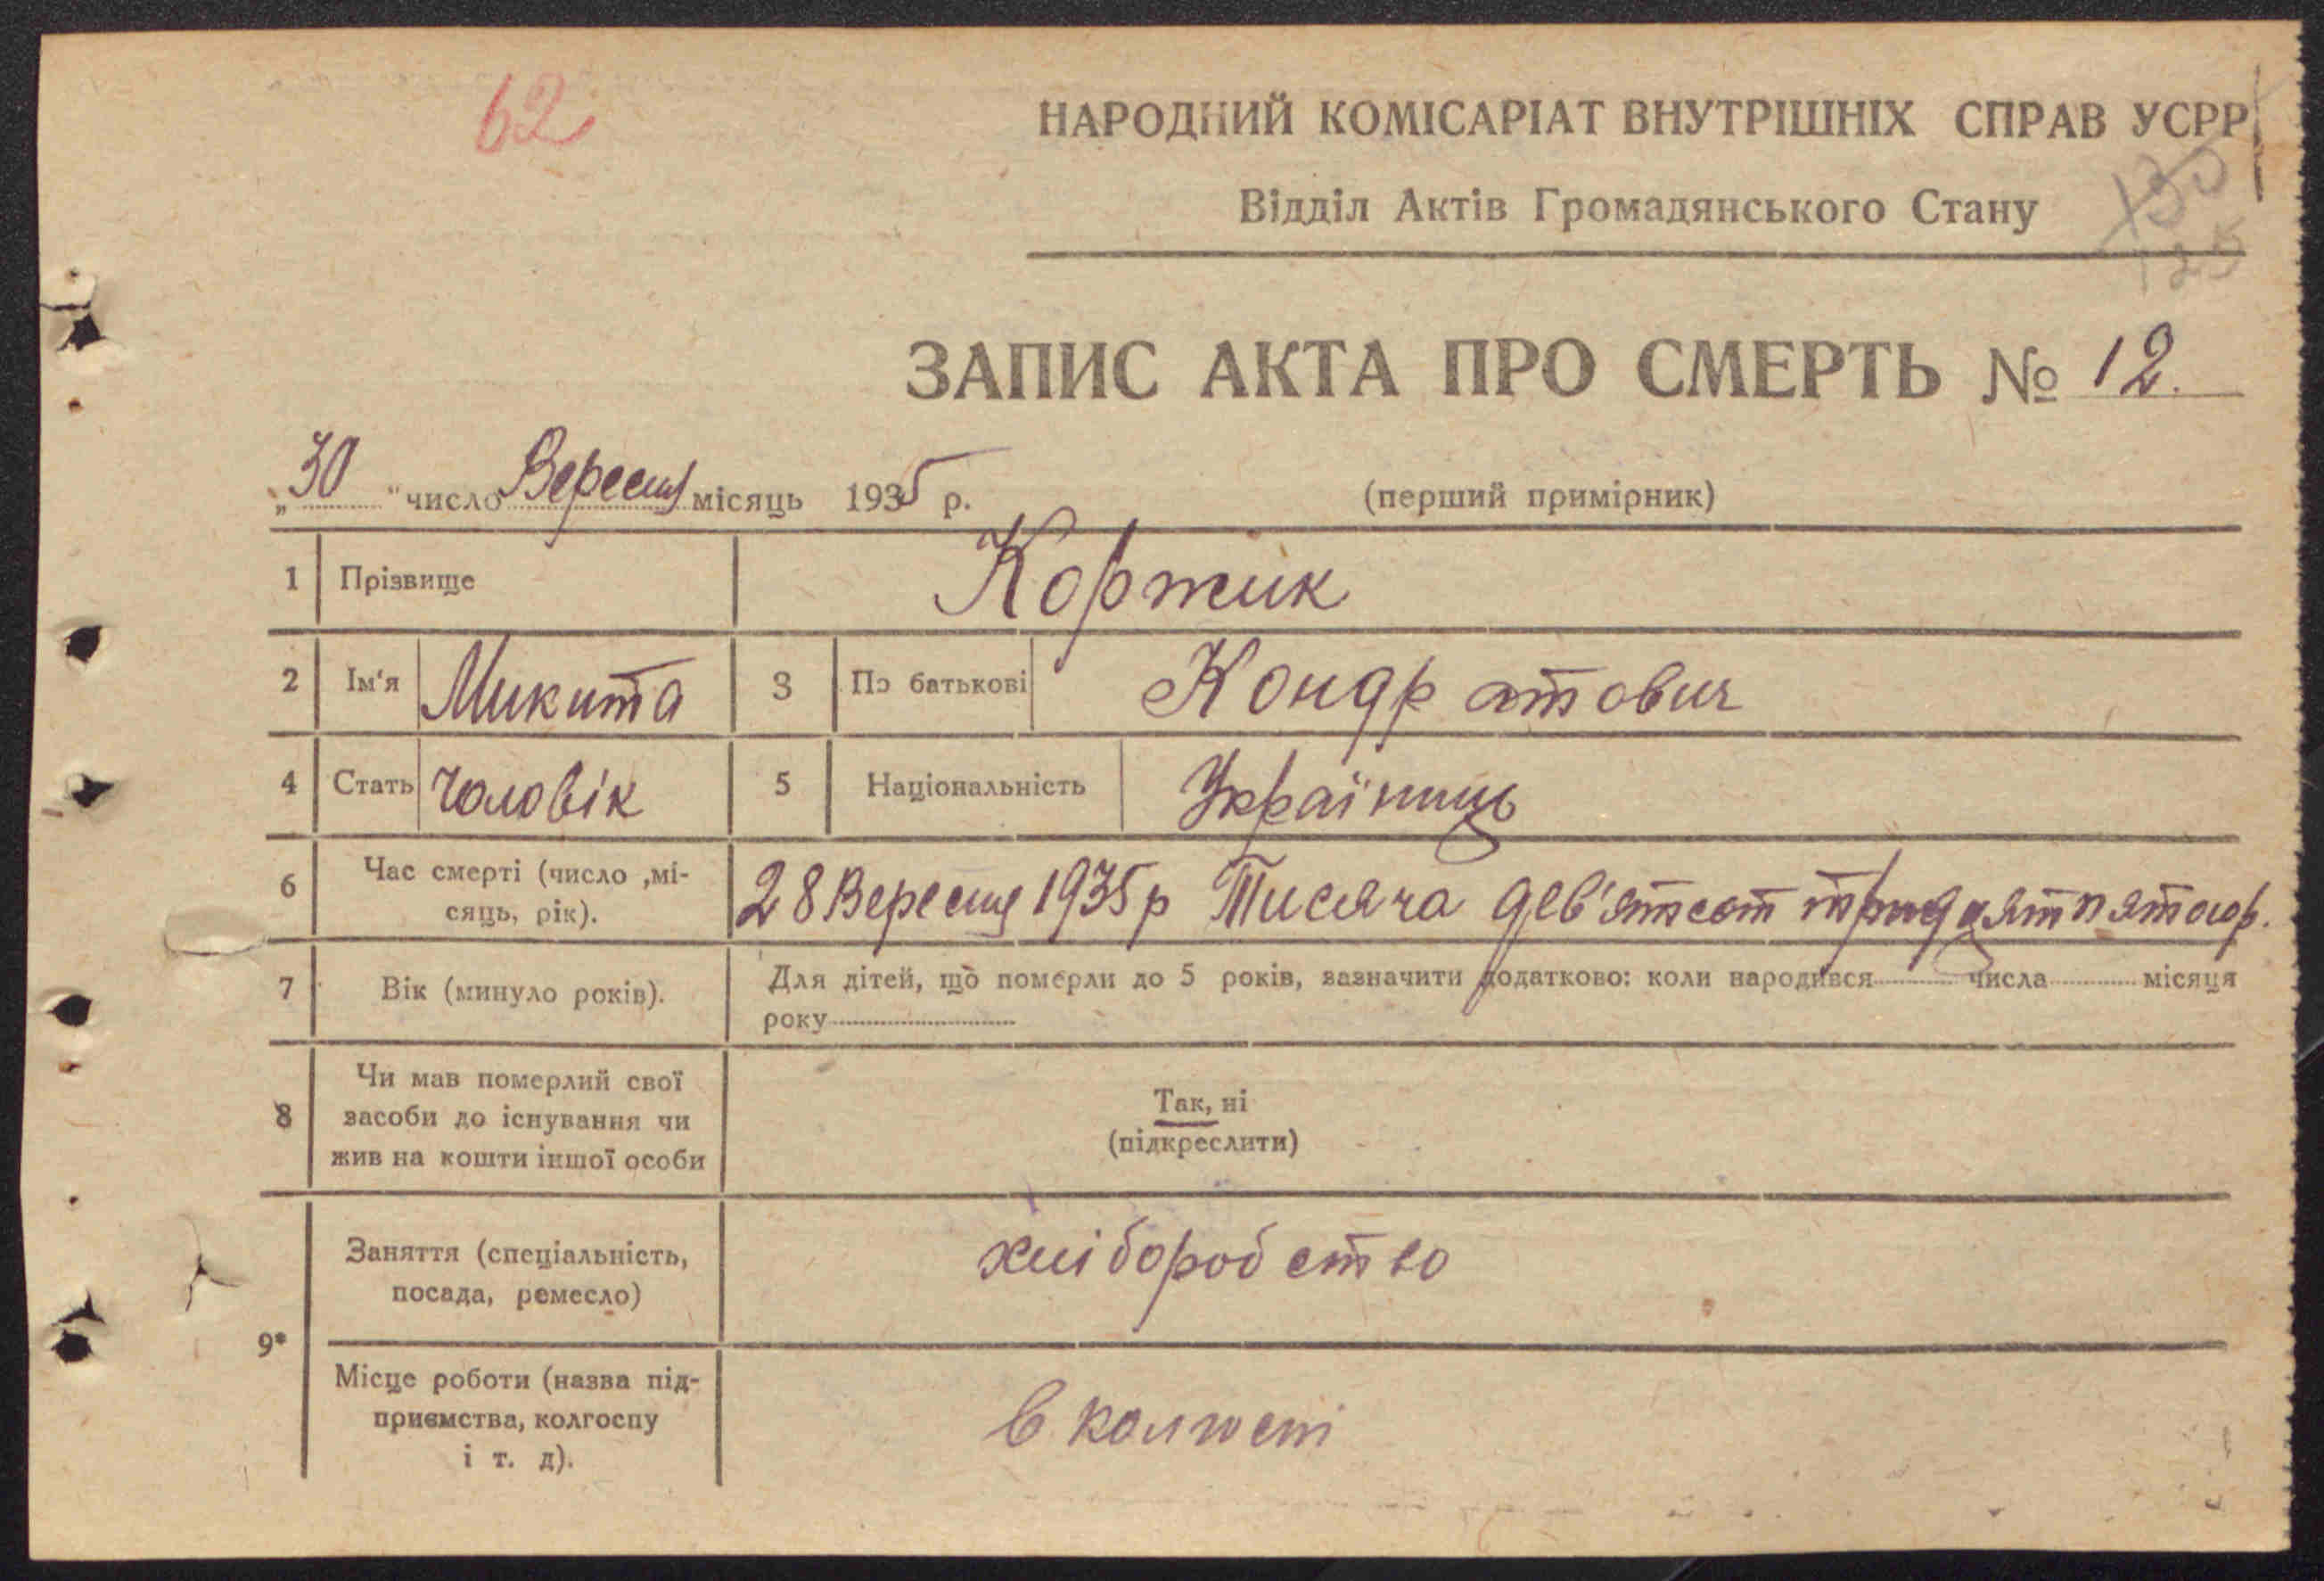 62
НАРОДНИЙ КОМІСАРІАТ ВНУТРІШНІХ СПРАВ УСРР
130
125
Відділ Актів Громадянського Стану
ЗАПИС АКТА ПРО СМЕРТЬ № 12.
„30" число Вересня місяць 1935 р. (перший примірник)
1 Прізвище Коржик
2 Ім'я Микита 3 По батькові Кондратович
4 Стать Чоловік 5 Національність Українець
6 Час смерті (число ,мі-
сяць, рік). 28 Вересня 1935 р Тисяча дев'ятсот тридцят пятогор.
7 Вік (минуло років). Для дітей, що померли до 5 років, зазначити додатково: коли народився числа місяця
року
8 Чи мав померлий свої
засоби до існування чи
жив на кошти іншої особи
Так, ні
(підкреслити)
9* Заняття (спеціальність,
посада, ремесло) хліборобство
Місце роботи (назва під-
приємства, колгоспу
і т. д). в